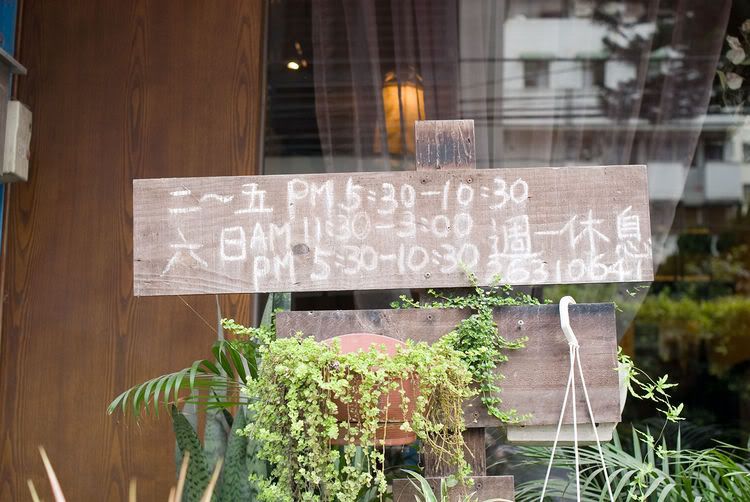 二～五 PM 5:30-10:30
六日 AM 11:30-3:00 週一休息
PM 5:30-10:30 26310641